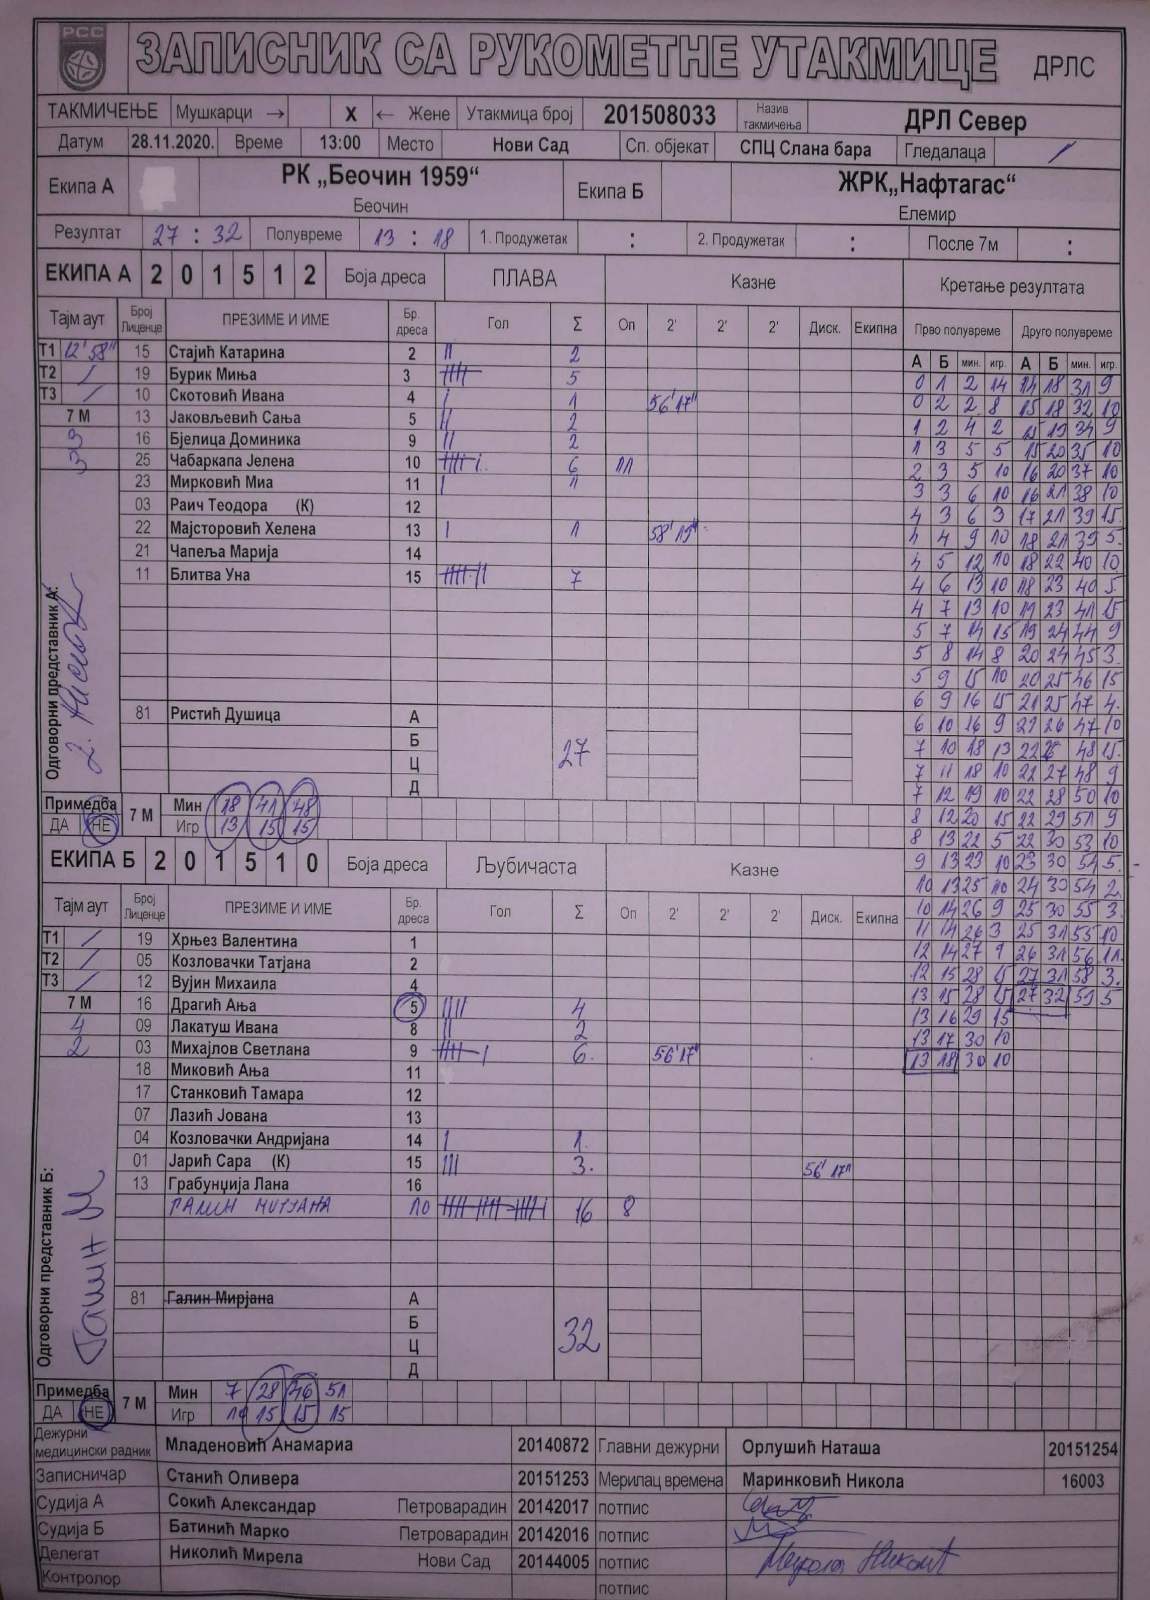 РСС
ЗАПИСНИК СА РУКОМЕТНЕ УТАКМИЦЕ ДРЛС
ТАКМИЧЕЊЕ Мушкарци → X ← Жене Утакмица број 201508033 Назив такмичења ДРЛ Север
Датум 28.11.2020. Време 13:00 Место Нови Сад Сп. објекат СПЦ Слана бара Гледалаца /
Екипа А РК „Беочин 1959“ Беочин Екипа Б ЖРК„Нафтагас“ Елемир
Резултат 27 : 32 Полувреме 13 : 18 1. Продужетак : 2. Продужетак : После 7м :
ЕКИПА А 2 0 1 5 1 2 Боја дреса ПЛАВА Казне Кретање резултата
Тајм аут Број Лиценце ПРЕЗИМЕ И ИМЕ Бр. дреса Гол Σ Оп 2' 2' 2' Диск. Екипна Прво полувреме Друго полувреме
А Б мин. игр. А Б мин. игр.
Т1 12'58" 15 Стајић Катарина 2 || 2
Т2 / 19 Бурик Миња 3 5
Т3 / 10 Скотовић Ивана 4 | 1 56'17"
7 М 13 Јаковљевић Сања 5 || 2
3 16 Бјелица Доминика 9 || 2
3 25 Чабаркапа Јелена 10 6 11
23 Мирковић Миа 11 | 1
03 Раич Теодора (К) 12
22 Мајсторовић Хелена 13 | 1 58'15"
21 Чапеља Марија 14
11 Блитва Уна 15 7
Одговорни представник А:
81 Ристић Душица А
Б
Ц
Д
27
Примедба ДА НЕ 7 М Мин 18 41 48
Игр 13 15 15
ЕКИПА Б 2 0 1 5 1 0 Боја дреса Љубичаста Казне
Тајм аут Број Лиценце ПРЕЗИМЕ И ИМЕ Бр. дреса Гол Σ Оп 2' 2' 2' Диск. Екипна
Т1 / 19 Хрњез Валентина 1
Т2 / 05 Козловачки Татјана 2
Т3 / 12 Вујин Михаила 4
7 М 16 Драгић Ања 5 |||| 4
4 09 Лакатуш Ивана 8 || 2
2 03 Михајлов Светлана 9 6. 56'17"
18 Миковић Ања 11
17 Станковић Тамара 12
07 Лазић Јована 13
04 Козловачки Андријана 14 | 1.
01 Јарић Сара (К) 15 ||| 3. 56'17"
13 Грабунџија Лана 16
ГАЛИН МИРЈАНА 10 16 8
Одговорни представник Б:
81 Галин Мирјана А
Б
Ц
Д
32
Примедба ДА НЕ 7 М Мин 7 28 46 51
Игр 10 15 15 15
0 1 2 14 14 18 31 9
0 2 2 8 15 18 32 10
1 2 4 2 15 19 34 9
1 3 5 5 15 20 35 10
2 3 5 10 16 20 37 10
3 3 6 10 16 21 38 10
4 3 6 3 17 21 39 15.
4 4 9 10 18 21 39 5.
4 5 12 10 18 22 40 10
4 6 13 10 18 23 40 5.
4 7 13 10 19 23 41 15
5 7 14 15 19 24 44 9
5 8 14 8 20 24 45 3.
5 9 15 10 20 25 46 15
6 9 16 15 21 25 47 4.
6 10 16 9 21 26 47 10
7 10 18 13 22 26 48 15.
7 11 18 10 22 27 48 9
7 12 19 10 22 28 50 10
8 12 20 15 22 29 51 9
8 13 22 5 22 30 53 10
9 13 23 10 23 30 54 5.
10 13 25 10 24 30 54 2.
10 14 26 9 25 30 55 3.
11 14 26 3 25 31 55 10
12 14 27 9 26 31 56 11.
12 15 28 15 27 31 58 3.
13 15 28 15 27 32 59 5
13 16 29 15
13 17 30 10
13 18 30 10
Дежурни медицински радник Младеновић Анамариа 20140872 Главни дежурни Орлушић Наташа 20151254
Записничар Станић Оливера 20151253 Мерилац времена Маринковић Никола 16003
Судија А Сокић Александар Петроварадин 20142017 потпис
Судија Б Батинић Марко Петроварадин 20142016 потпис
Делегат Николић Мирела Нови Сад 20144005 потпис
Контролор потпис